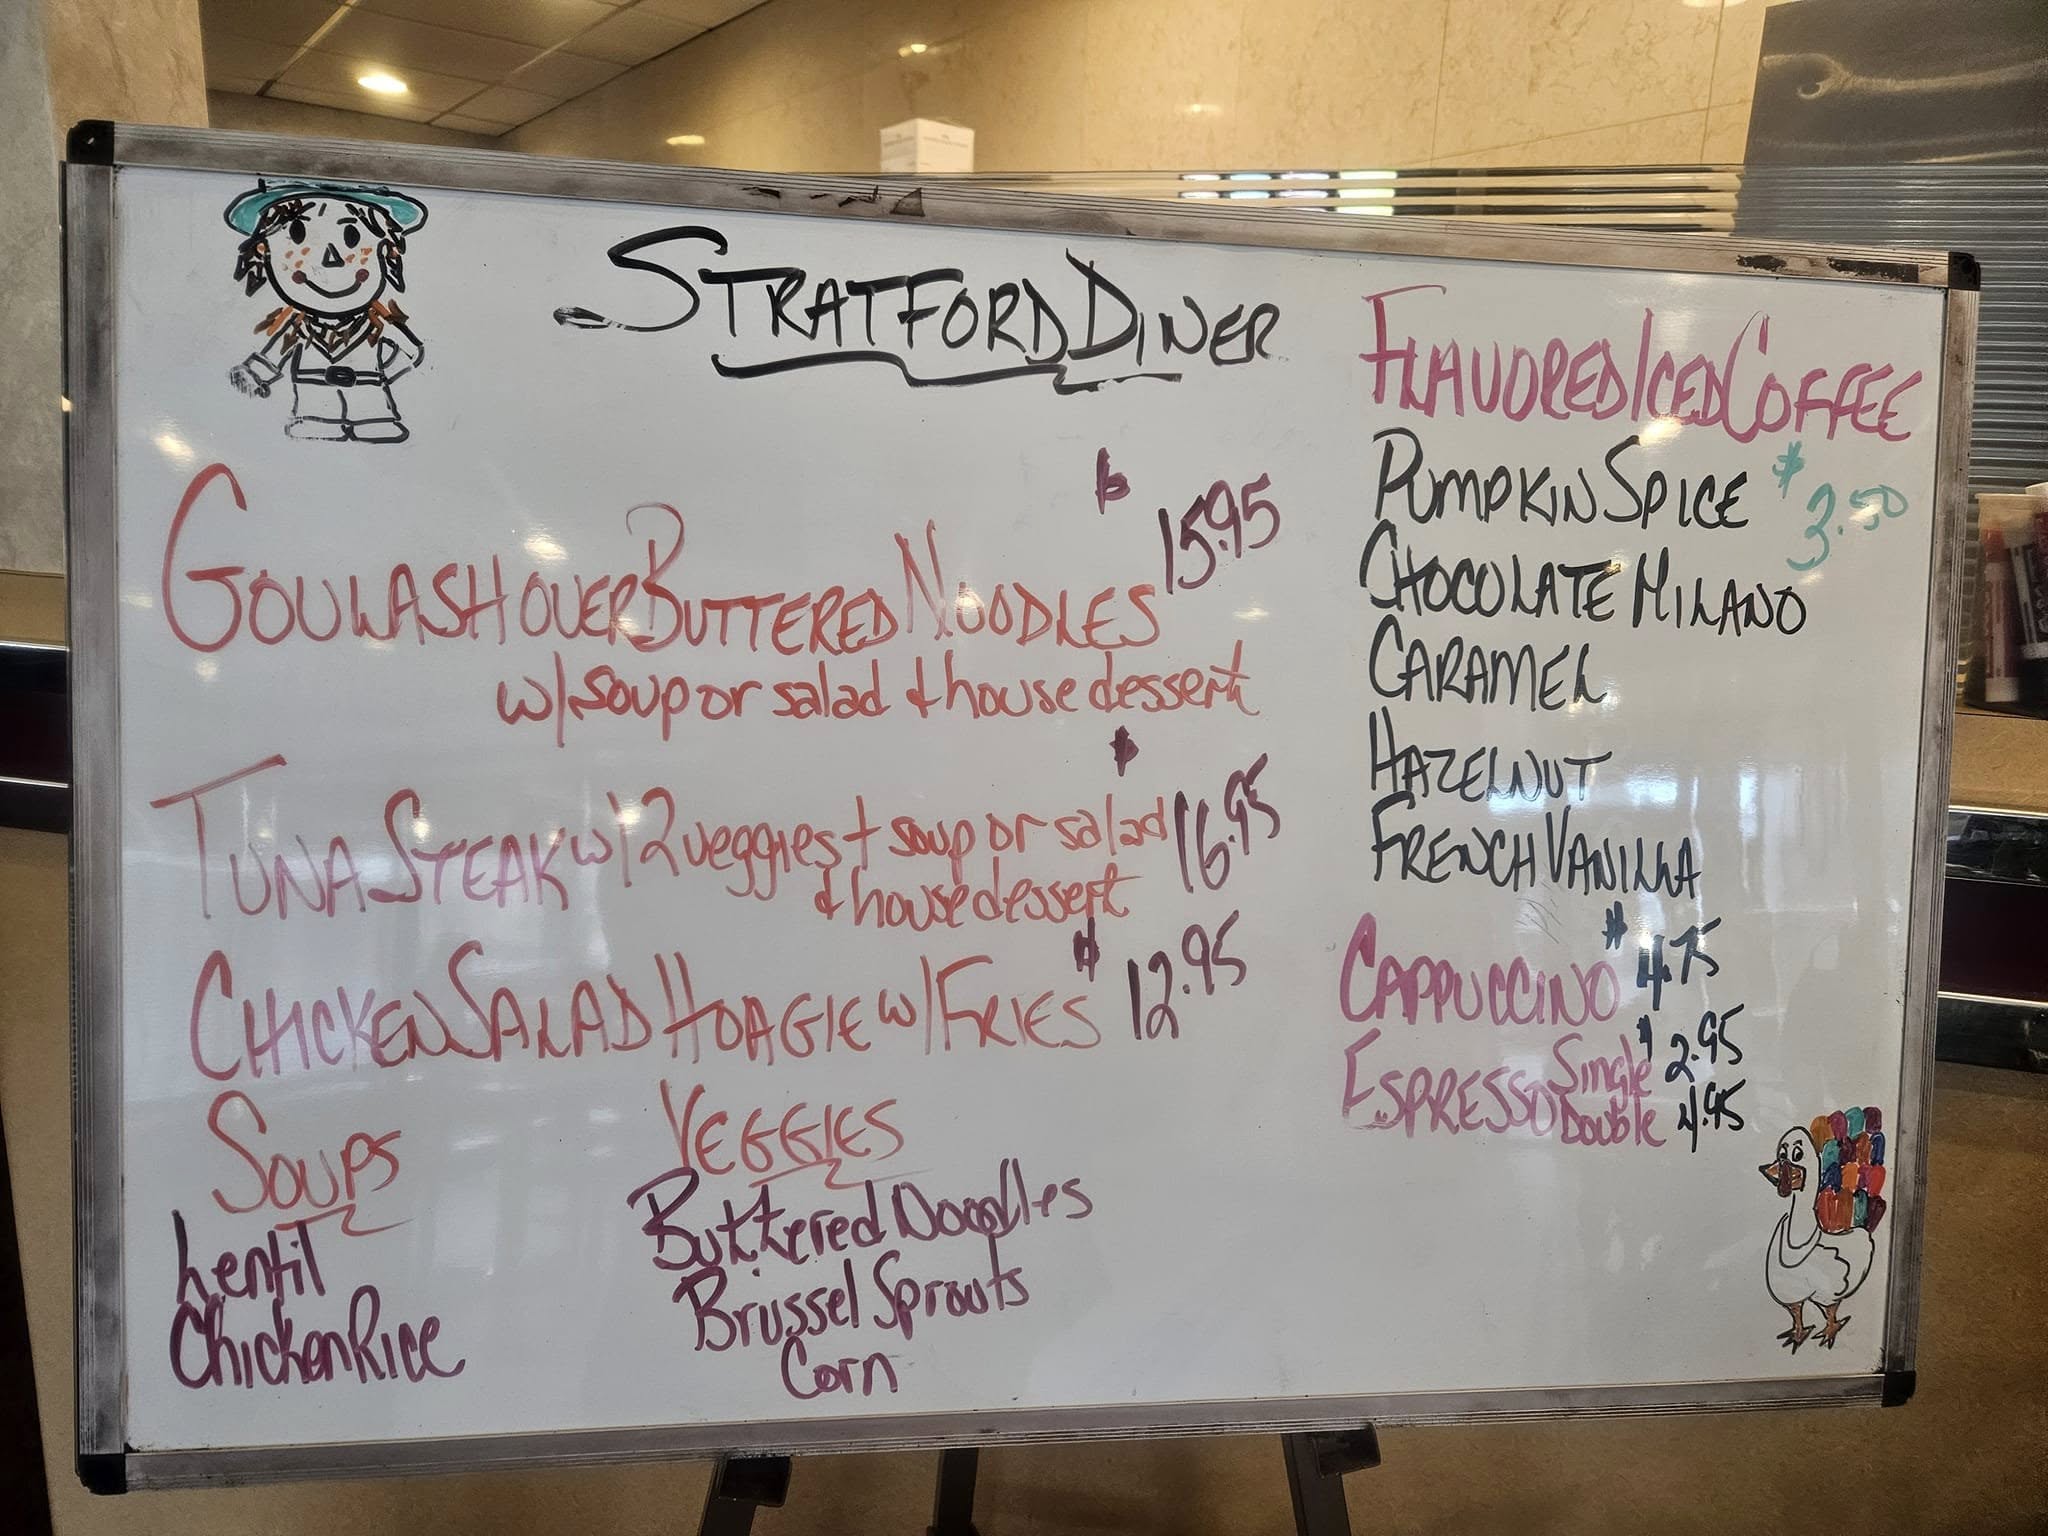 STRATFORD DINER
$ 15.95
GOULASH OVER BUTTERED NOODLES
w/ soup or salad & house dessert
TUNA STEAK w/ 2 veggies + soup or salad $ 16.95
& house dessert
CHICKEN SALAD HOAGIE w/ FRIES $ 12.95
SOUPS
Lentil
Chicken Rice
VEGGIES
Buttered Noodles
Brussel Sprouts
Corn
FLAVORED ICED COFFEE
PUMPKIN SPICE $ 3.50
CHOCOLATE MILANO
CARAMEL
HAZELNUT
FRENCH VANILLA
CAPPUCCINO $ 4.75
ESPRESSO Single $ 2.95
Double 4.95